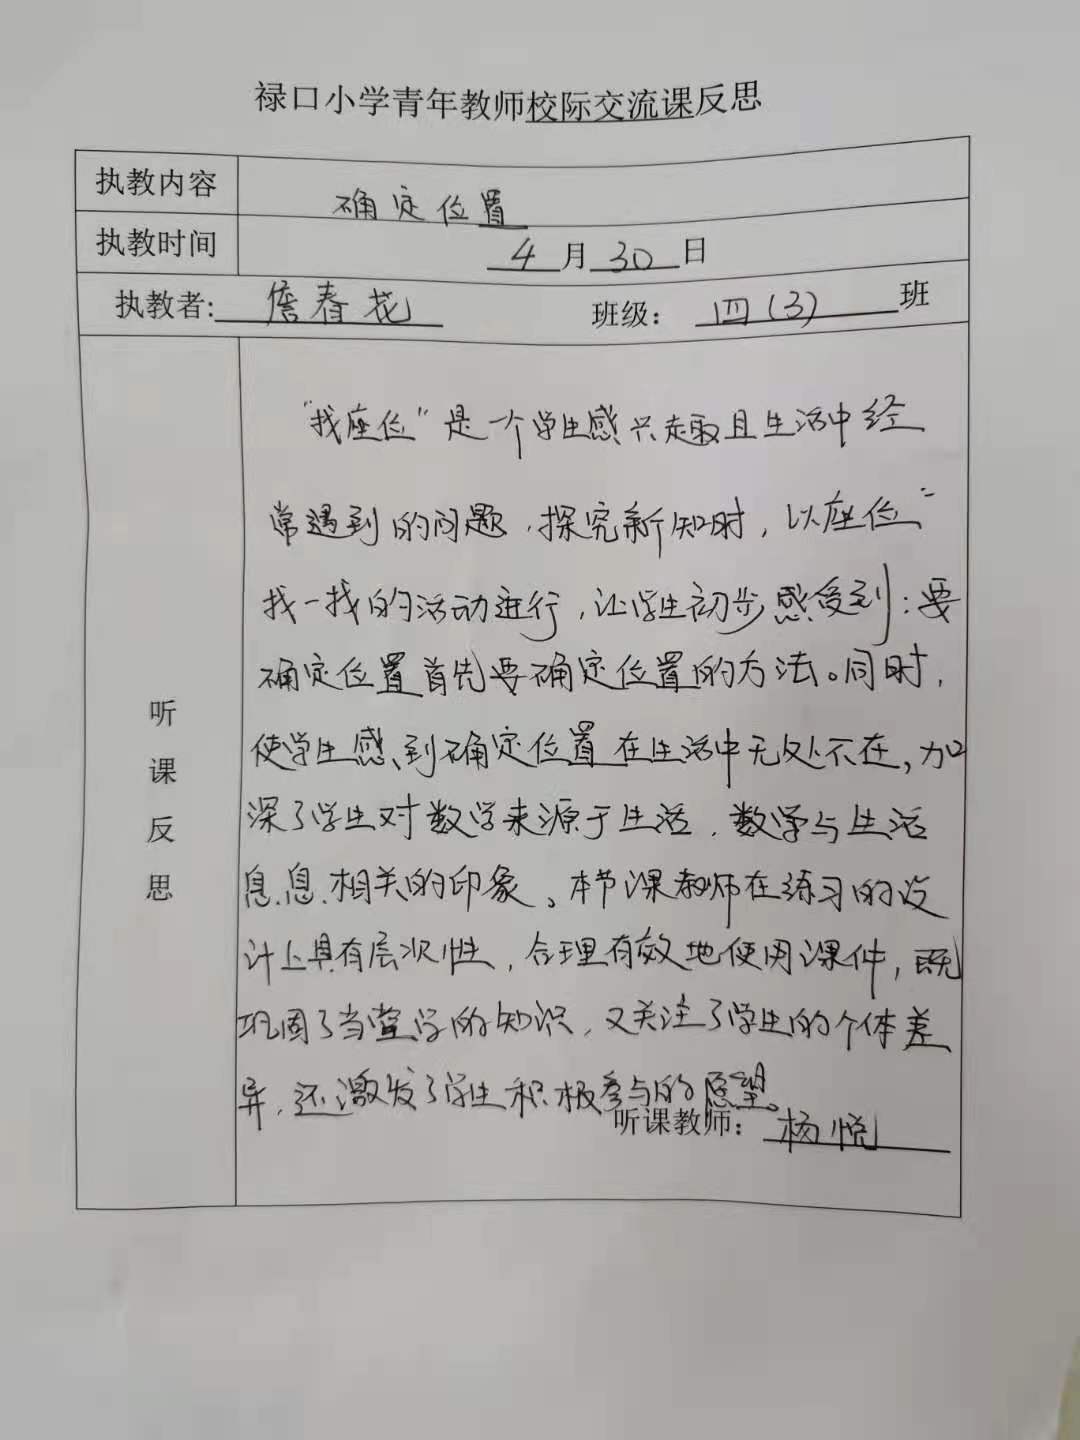 禄口小学青年教师校际交流课反思
执教内容 确定位置
执教时间 4月30日
执教者: 詹春花 班级： 四(3) 班
听课反思
"找座位"是一个学生感兴趣且生活中经
常遇到的问题，探究新知时，以座位"
找一找的活动进行，让学生初步感受到：要
确定位置首先要确定位置的方法。同时，
使学生感到确定位置在生活中无处不在，加
深了学生对数学来源于生活，数学与生活
息息相关的印象。本节课教师在练习的设
计上具有层次性，合理有效地使用课件，既
巩固了当堂学的知识，又关注了学生的个体差
异，还激发了学生积极参与的愿望。
听课教师： 杨悦